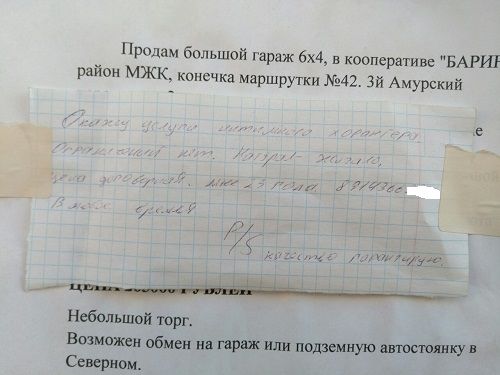 Продам большой гараж 6х4, в кооперативе "БАРИН
район МЖК, конечка маршрутки №42. 3й Амурский
Окажу услуги интимного характера.
нет.
цена договорная. мне 23 года 8914360
В любое время
P/S качество гарантирую.
ЦЕНА РУБЛЕЙ
Небольшой торг.
Возможен обмен на гараж или подземную автостоянку в
Северном.